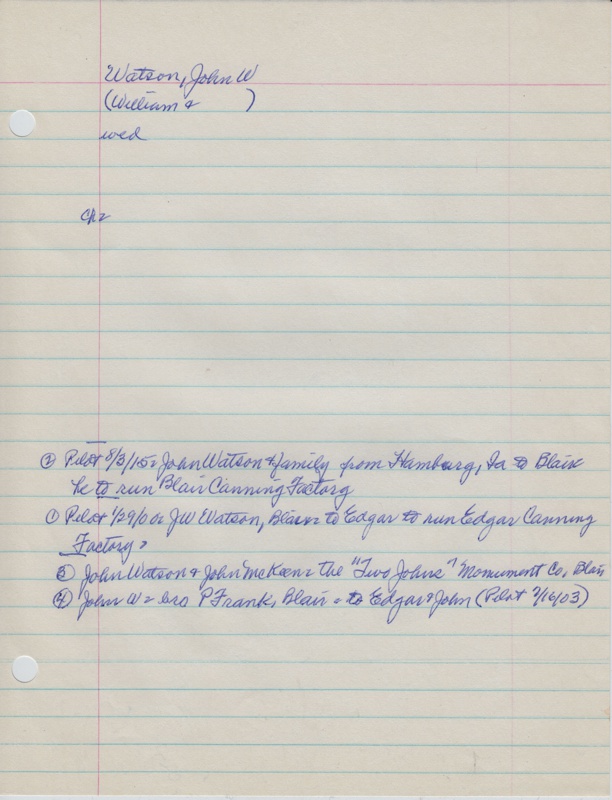 Watson, John W
(William &        )
wed
Ch=
② Pilot 8/3/15= John Watson & family from Hamburg, Ia to Blair
he to run Blair Canning Factory
① Pilot 1/29/0 J W Watson, Blair= to Edgar to run Edgar Canning
Factory=
③ John Watson & John McKeen= the "Two Johns" Monument Co, Blair
④ John W= bro P Frank, Blair = to Edgar & John (Pilot /16/03)